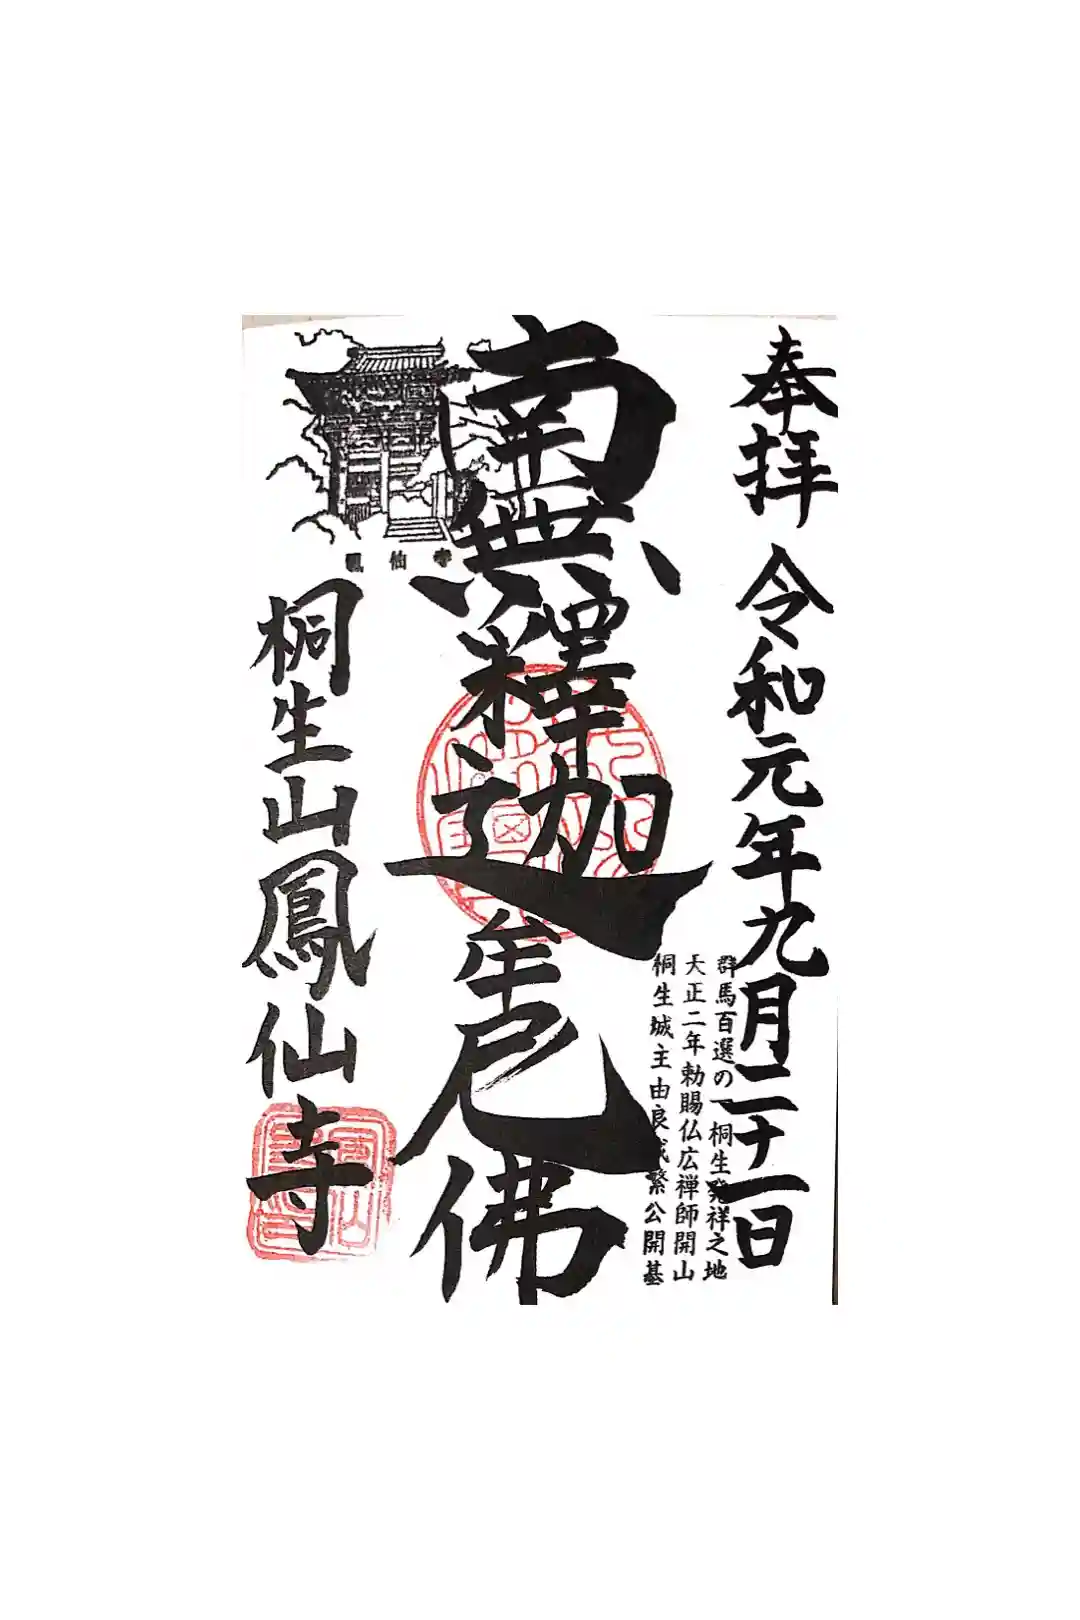 奉拝 令和元年九月二十一日
群馬百選の一桐生発祥之地
大正二年勅賜仏広禅師開山
桐生城主由良成繁公開基
南無釋迦牟尼佛
鳳仙寺
桐生山鳳仙寺